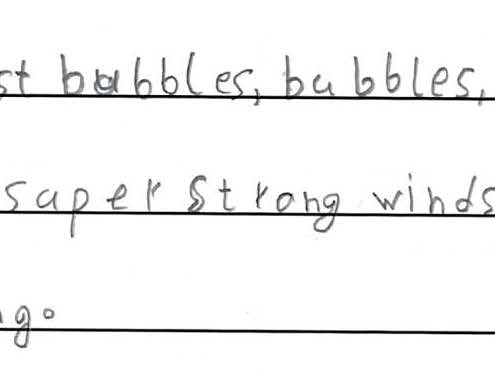 st babbles, babbles,
saper strong winds
g.